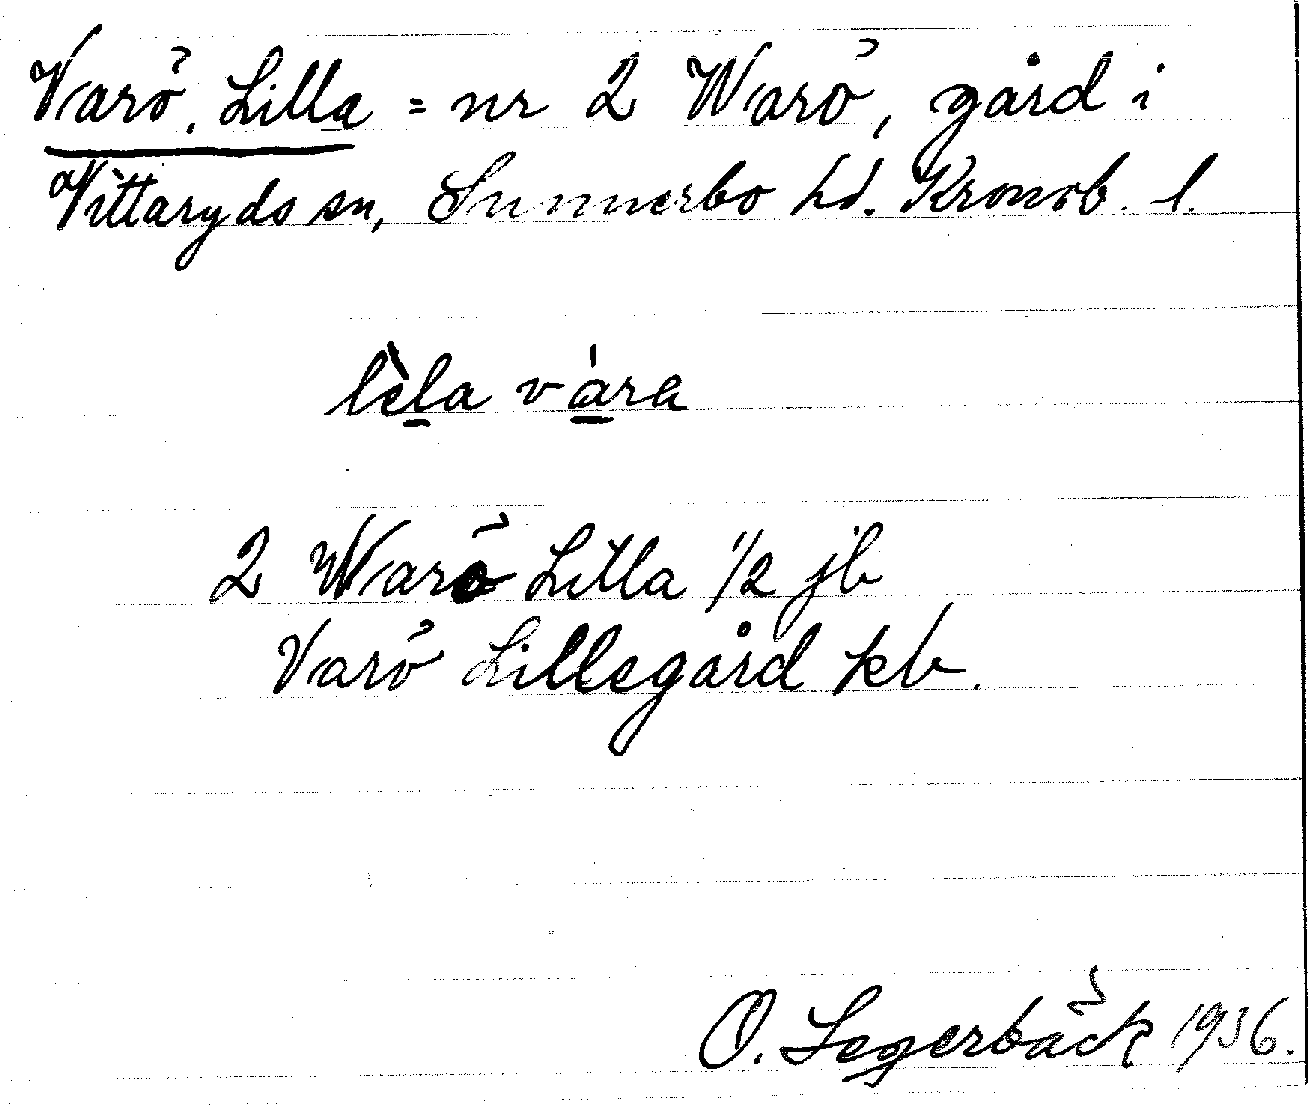 Varö, Lilla = nr 2 Warö, gård i
Vittaryds sn, Sunnerbo hd. Kronob. l.
lè̱la vá̱ra
2 Warö Lilla 1/2 jb
Varö Lillegård kb.
O. Segerbäck 1936.